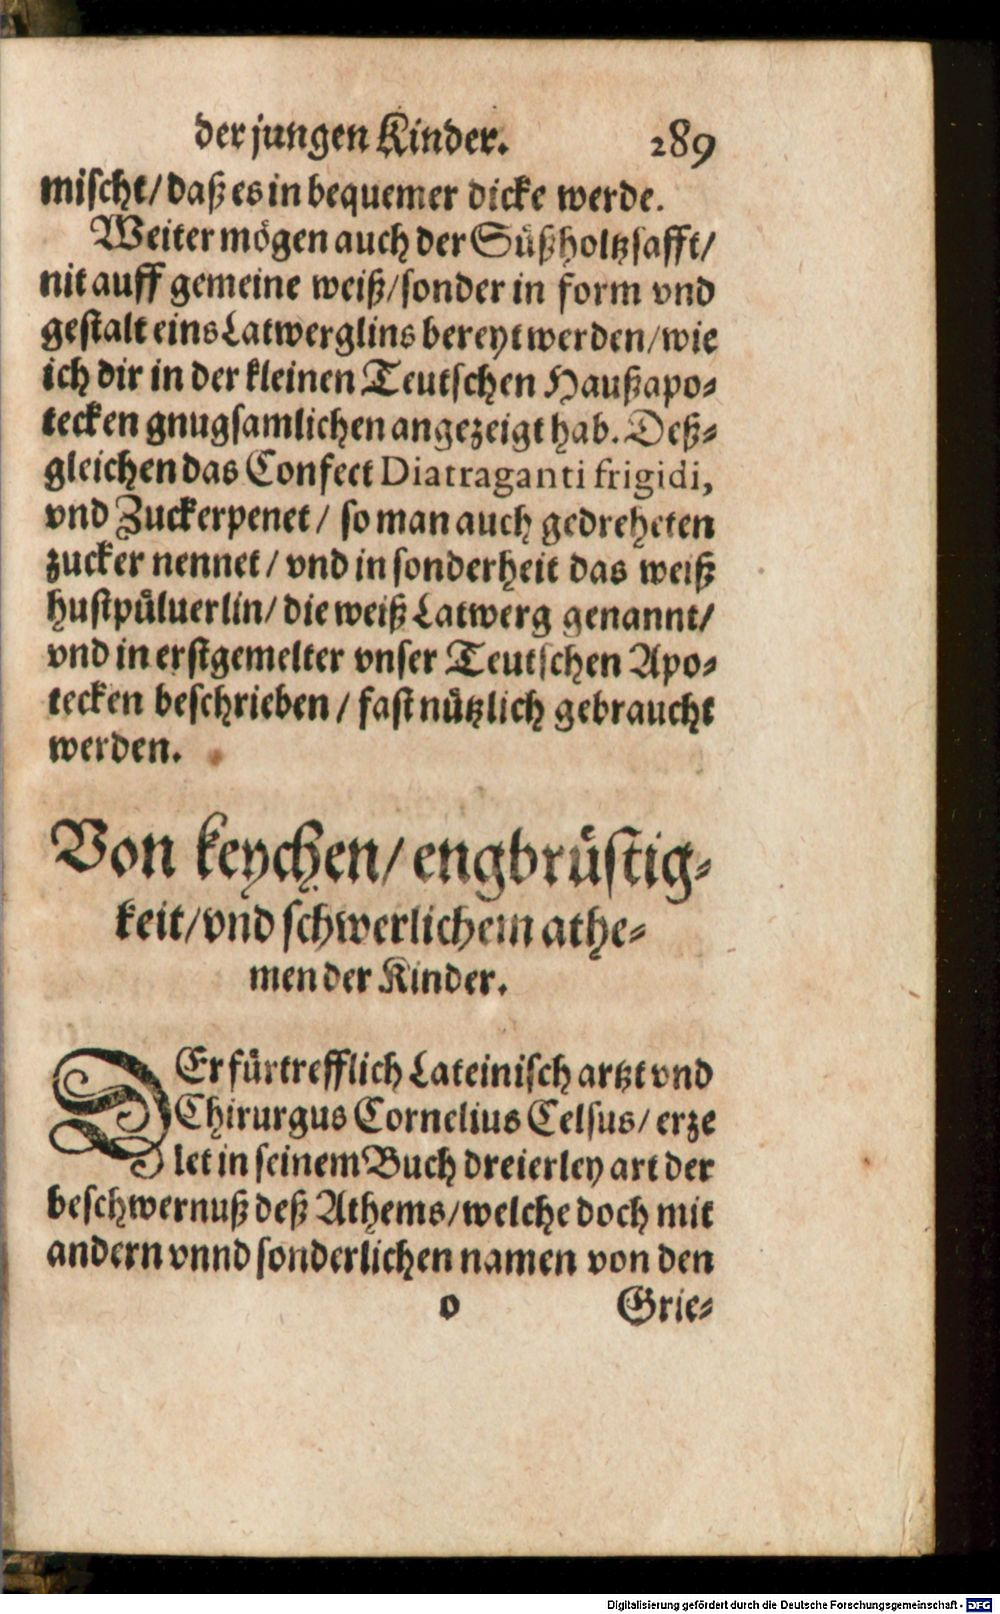 der jungen Kinder. 289
mischt/ daß es in bequemer dicke werde.
Weiter mögen auch der Süßholtzsafft/
nit auff gemeine weiß/ sonder in form vnd
gestalt eins Latwerglins bereyt werden/ wie
ich dir in der kleinen Teutschen Haußapo⸗
tecken gnugsamlichen angezeigt hab. Deß⸗
gleichen das Confect Diatraganti frigidi,
vnd Zuckerpenet/ so man auch gedreheten
zucker nennet/ vnd in sonderheit das weiß
hustpůluerlin/ die weiß Latwerg genannt/
vnd in erstgemelter vnser Teutschen Apo⸗
tecken beschrieben/ fast nützlich gebraucht
werden.
Von keychen/ engbrüstig⸗
keit/ vnd schwerlichem athe⸗
men der Kinder.
DEr fürtrefflich Lateinisch artzt vnd
Chirurgus Cornelius Celsus/ erze
let in seinem Buch dreierley art der
beschwernuß deß Athems/ welche doch mit
andern vnnd sonderlichen namen von den
o Grie⸗
Digitalisierung gefördert durch die Deutsche Forschungsgemeinschaft - DFG